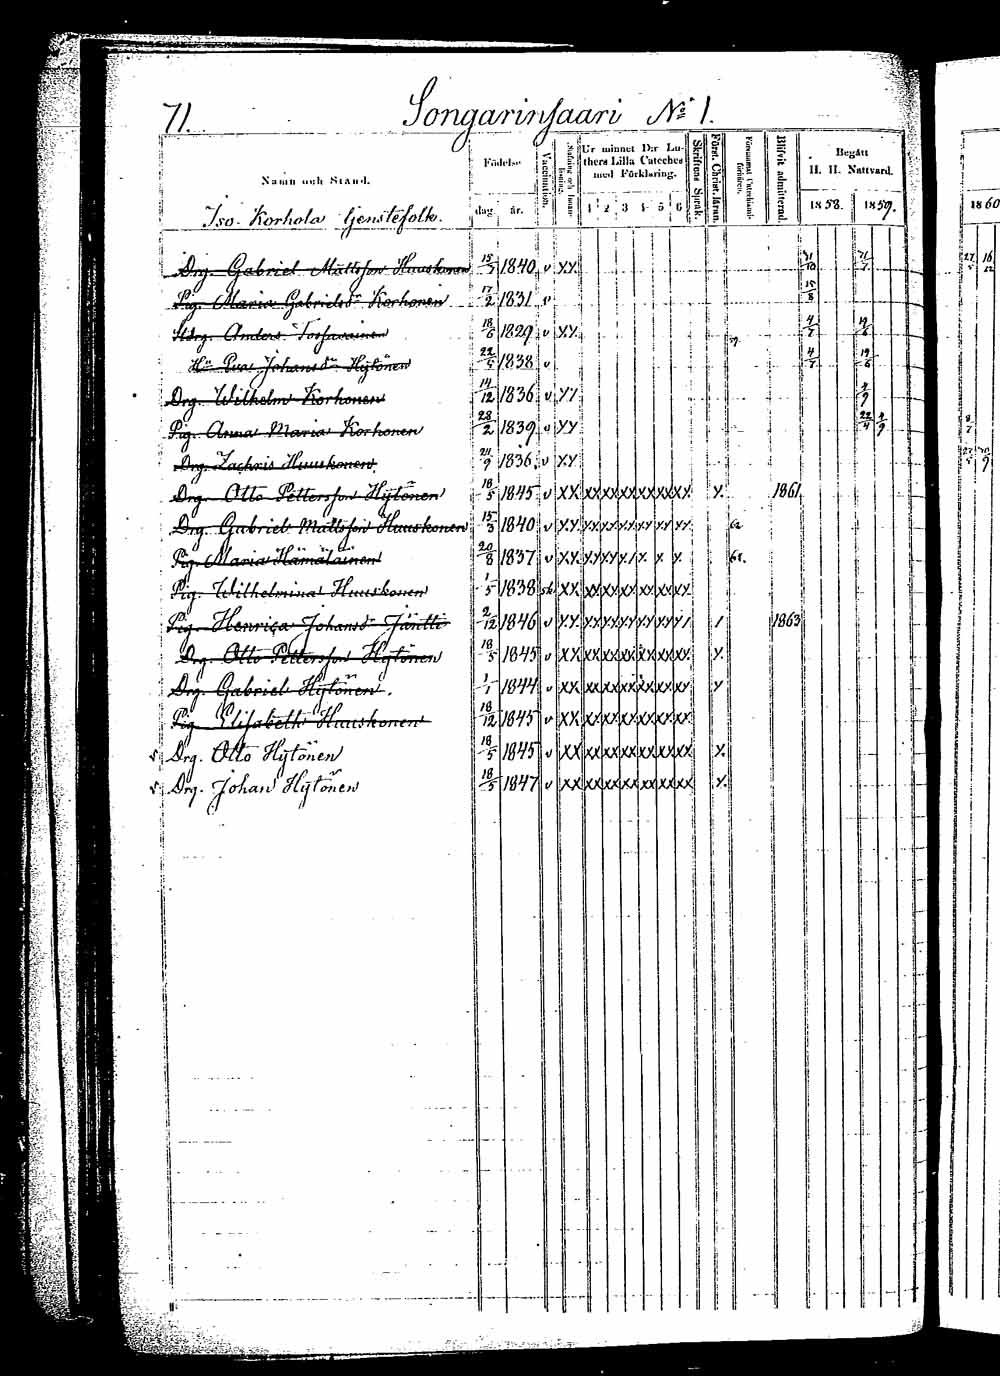 71. Songarinsaari No 1.
Namn och Stånd. Födelse dag. år. Vaccination. Ur minnet D:r Luthers Lilla Cateches med Förklaring. 1 2 3 4 5 6 Skriftens Språk. Först. Christ. läran. Blifvit admitterad. Begått H. H. Nattvard. 1858. 1859. 1860
Iso Korhola tjenstefolk.
Drg. Gabriel Mattsson Huuskonen 15/3 1840 v XX
Pig. Maria Gabrielsdr Korhonen 17/2 1831 v 15/8
Anders 18/6 1829 v XX 4/7 19/6
Hu Eva Johansdr Hytönen 22/5 1838 v 4/7 19/6
Drg. Wilhelm Korhonen 14/12 1836 v XX
Pig. Anna Maria Korhonen 28/2 1839 v XX 22/4 8/7
Drg. Zachris Huuskonen 24/9 1836 v XX
Drg. Otto Pettersson Hytönen 18/5 1845 v XX XX XX XX XX XX XX X. 1861
Drg. Gabriel Mattsson Huuskonen 15/3 1840 v XX XX XX XX XX XX XX
Pig. Maria Hämäläinen 20/8 1837 v XX
Pig. Wilhelmina Huuskonen 1/5 1838 XX XX XX XX XX XX XX
Pig. Henrica Johansdr Jäntti 2/12 1846 v XX 1863
Drg. Otto Pettersson Hytönen 18/5 1845 v XX XX XX XX XX XX XX X.
Drg. Gabriel Hytönen. 1/1 1844 v XX XX XX XX XX XX XX X
Pig Elisabeth Huuskonen 18/12 1845 v XX XX XX XX XX XX XX
Drg. Otto Hytönen 18/5 1845 v XX XX XX XX XX XX XX X.
Drg. Johan Hytönen 18/5 1847 v XX XX XX XX XX XX XX X.